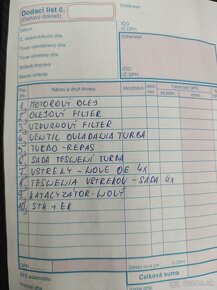 Dodací list č.
(Daňový doklad)
Dodávateľ
IČO:
IČ DPH
Odberateľ:
IČO:
IČ DPH
Miesto určenia
Názov a druh tovaru
Množstvo
Cena bez DPH
1 MOTOROVÝ OLEJ
2 OLEJOVÝ FILTER
3 VZDUCHOVÝ FILTER
4 VENTIL OVLADANIA TURBA
5 TURBO - REPAS
6 SADA TESNENÍ TURBA
7 VSTREKY - NOVÉ OE 4x
8 TESNENIA VSTREKOV - SADA 4x
9 KATALYZÁTOR - NOVÝ
10 STK + EK
ŠPZ automobilu
Celková suma
bazos.sk